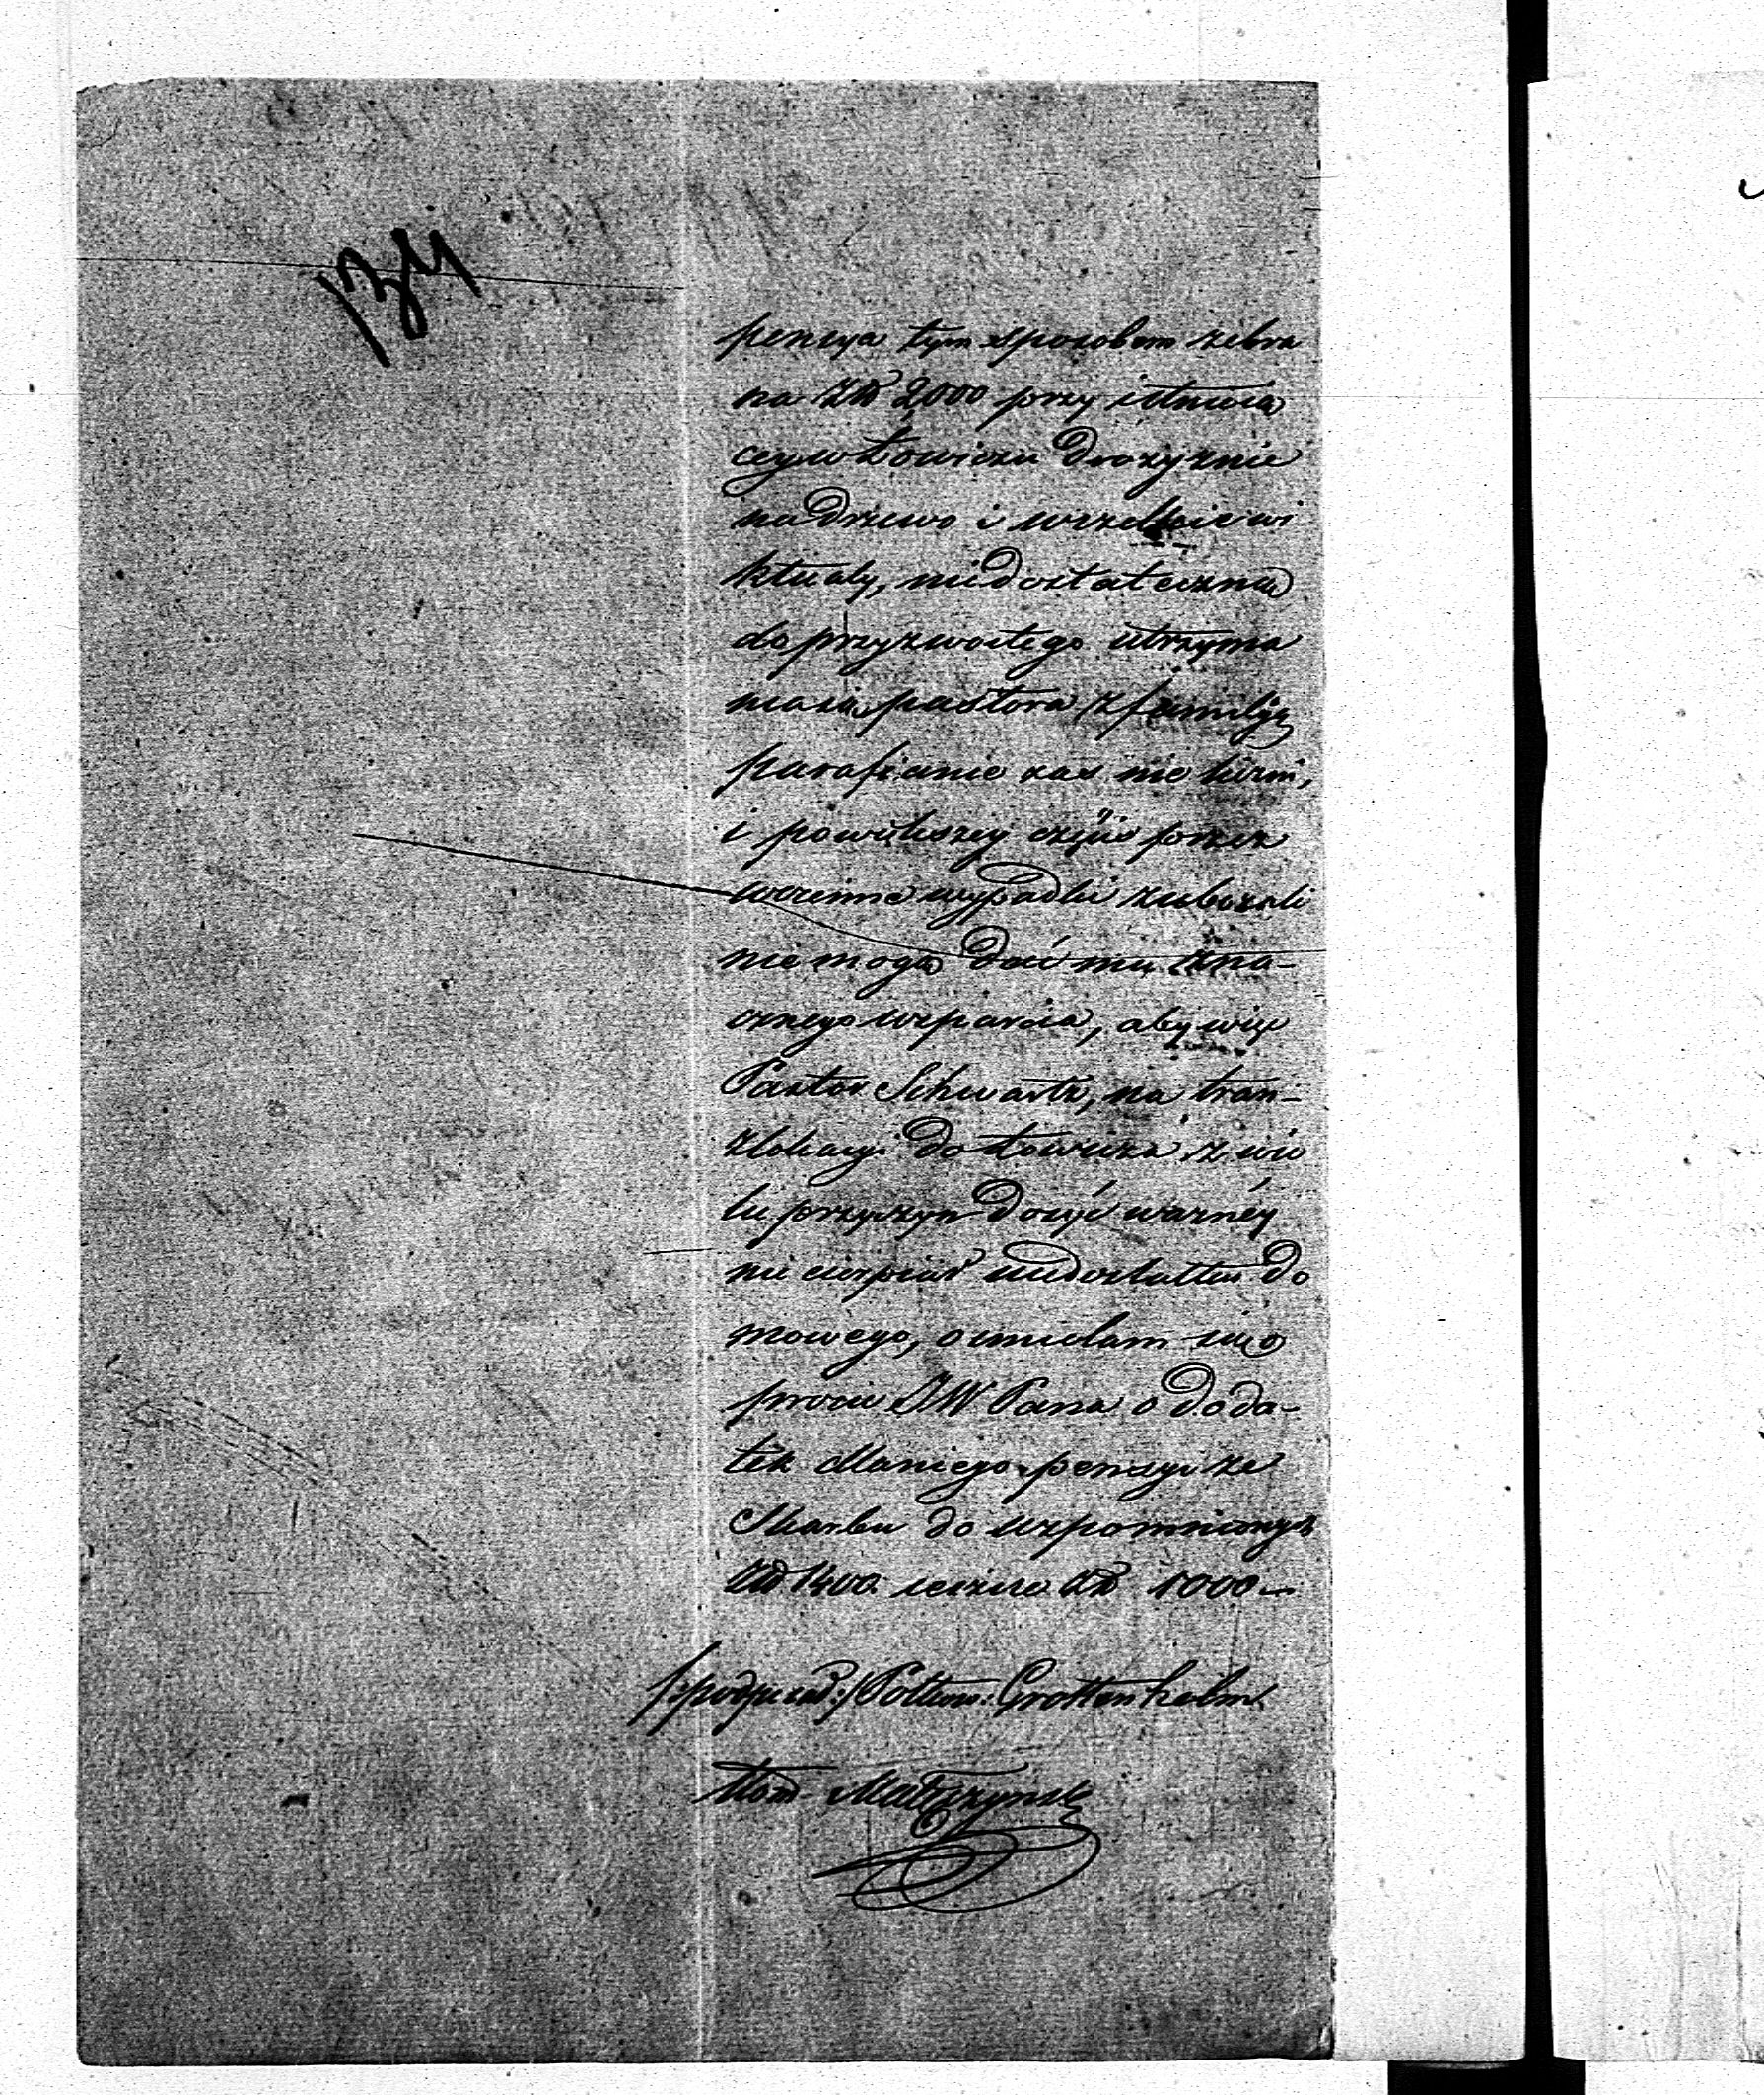 134
pensya tym sposobem zebra
na Zł 2000 przy istnieią
cey w Łowiczu drożyznie
na drzewo i wszelkie wi
ktuały, niedostateczną
do przyzwoitego utrzyma
nia pastora z familją
parafianie zas nie liczni,
i powiększey części przez
woienne wypadki zubożali
nie mogą dać mu zna-
cznego wsparcia, aby więc
Pastor Schwartz, na tran-
zlokacyi do Łowicza z wie
lu przyczyn dosyć ważney
nie cierpiał niedostatku do
mowego, osmielam się
prosić JW Pana o doda-
tek do pensyi ze
Skarbu do wspomnionych
Zł 1400 ieszcze Zł 1000
/:podpisał:/ Półkow: Grottenhelm